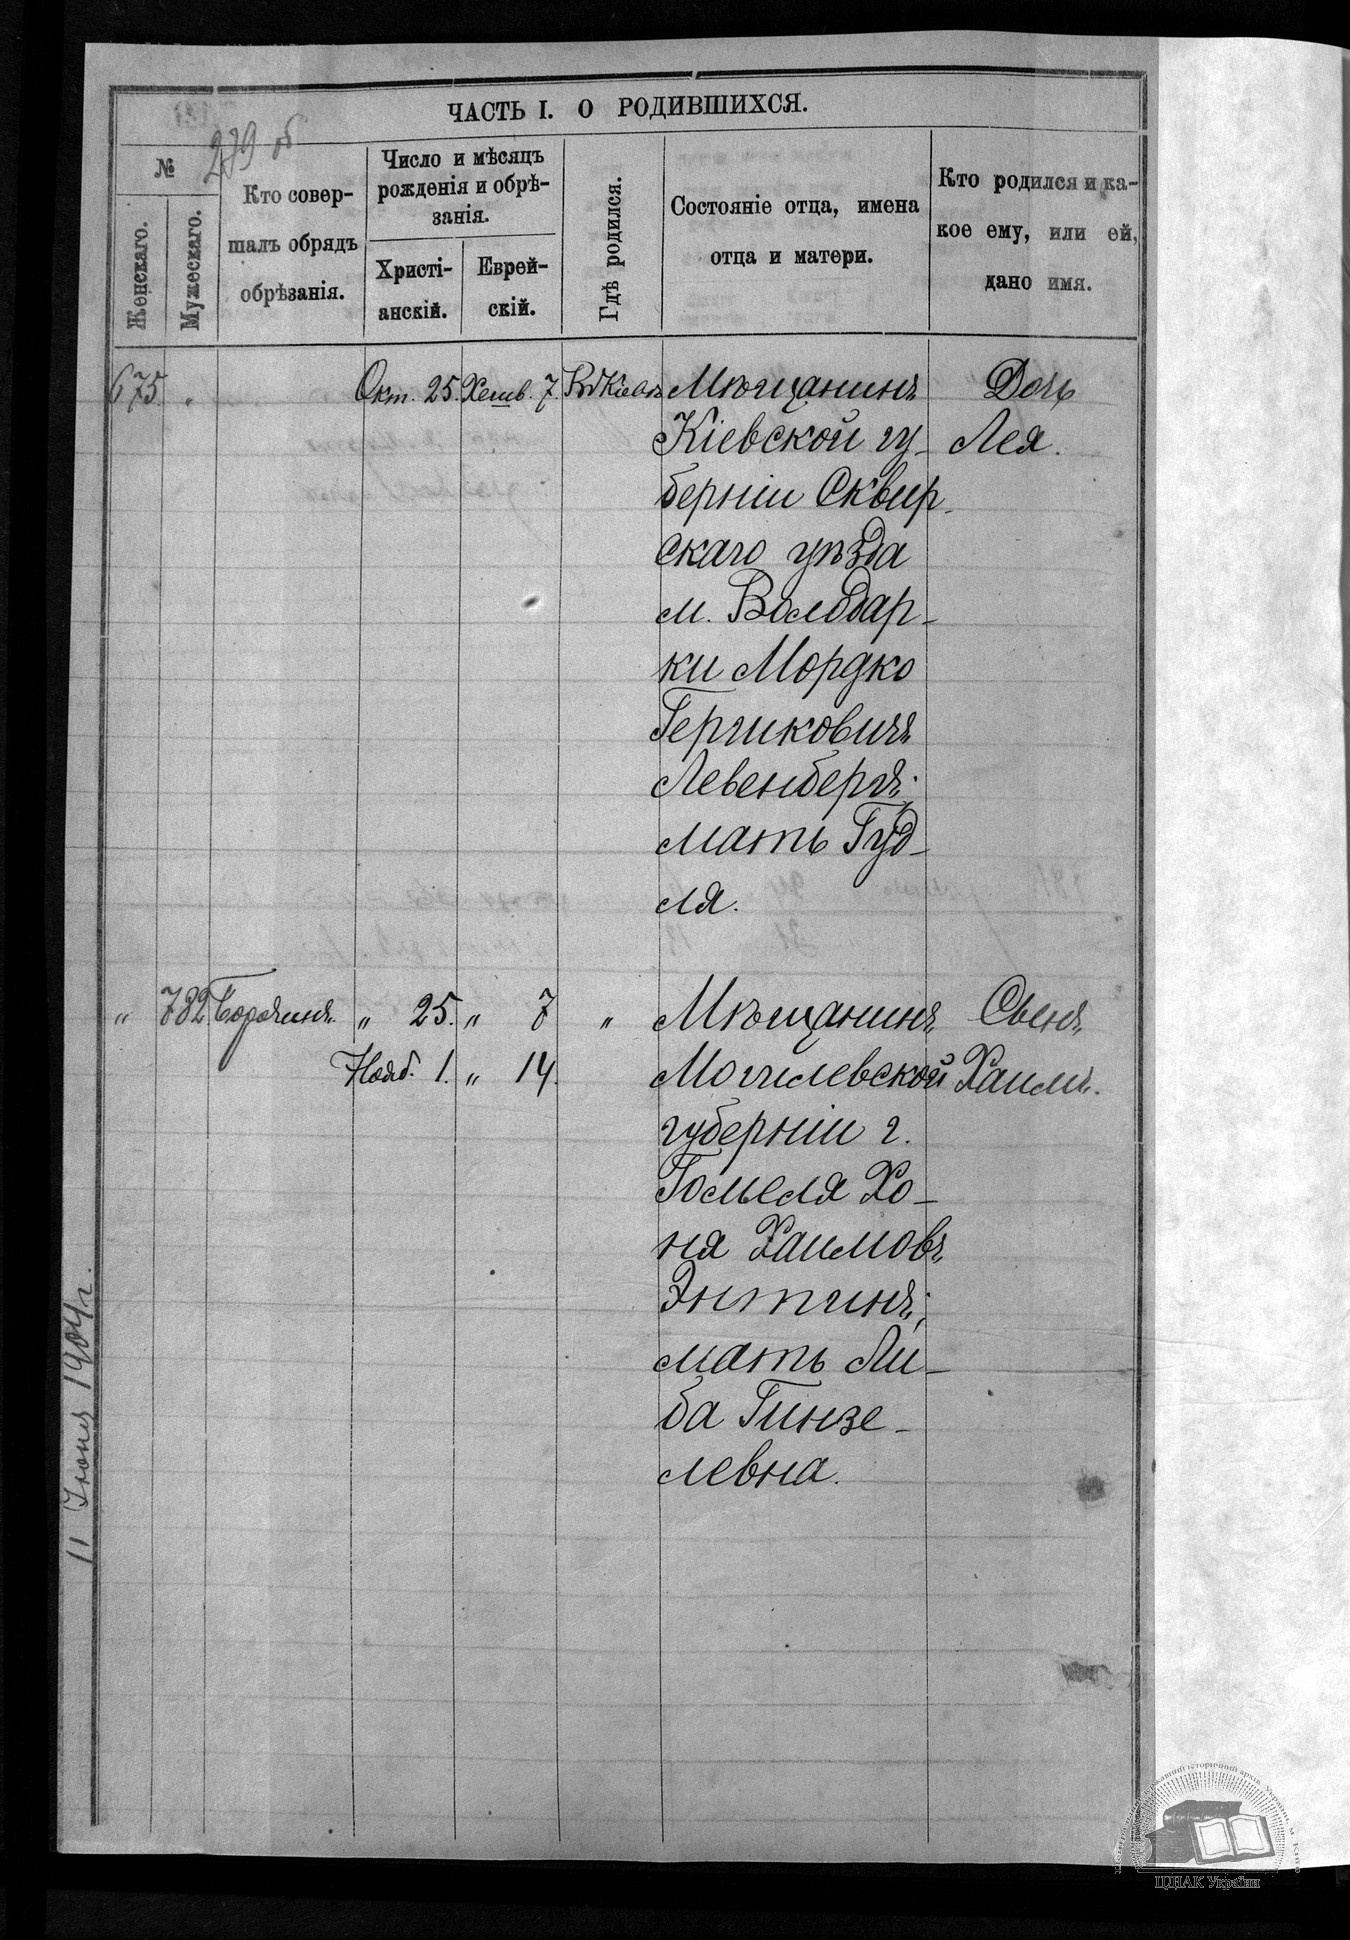 ЧАСТЬ I. О РОДИВШИХСЯ.
279 об
№
Женскаго.
Мужескаго.
Кто совер-
шалъ обрядъ
обрѣзанія.
Число и мѣсяцъ
рожденія и обрѣ-
занія.
Христі-
анскій.
Еврей-
скій.
Гдѣ родился.
Состояніе отца, имена
отца и матери.
Кто родился и ка-
кое ему, или ей,
дано имя.
675. „ Окт. 25. Хешв. 7. Въ Кіевѣ Мѣщанинъ Дочь
Кіевской гу- Лея.
берніи Сквир-
скаго уѣзда
м. Володар-
ки Мордко
Гершковичъ
Левенбергъ;
мать Гуд-
ля.
„ 782. „ 25. „ 7 „ Мѣщанинъ Сынъ
Нояб. 1. „ 14. Могилевской Хаимъ.
губерніи г.
Гомеля Хо-
ня Хаимовъ
Энтинъ;
мать Ли-
ба Гинзе-
левна.
11 Іюня 1904 г.
ЦДІАК України